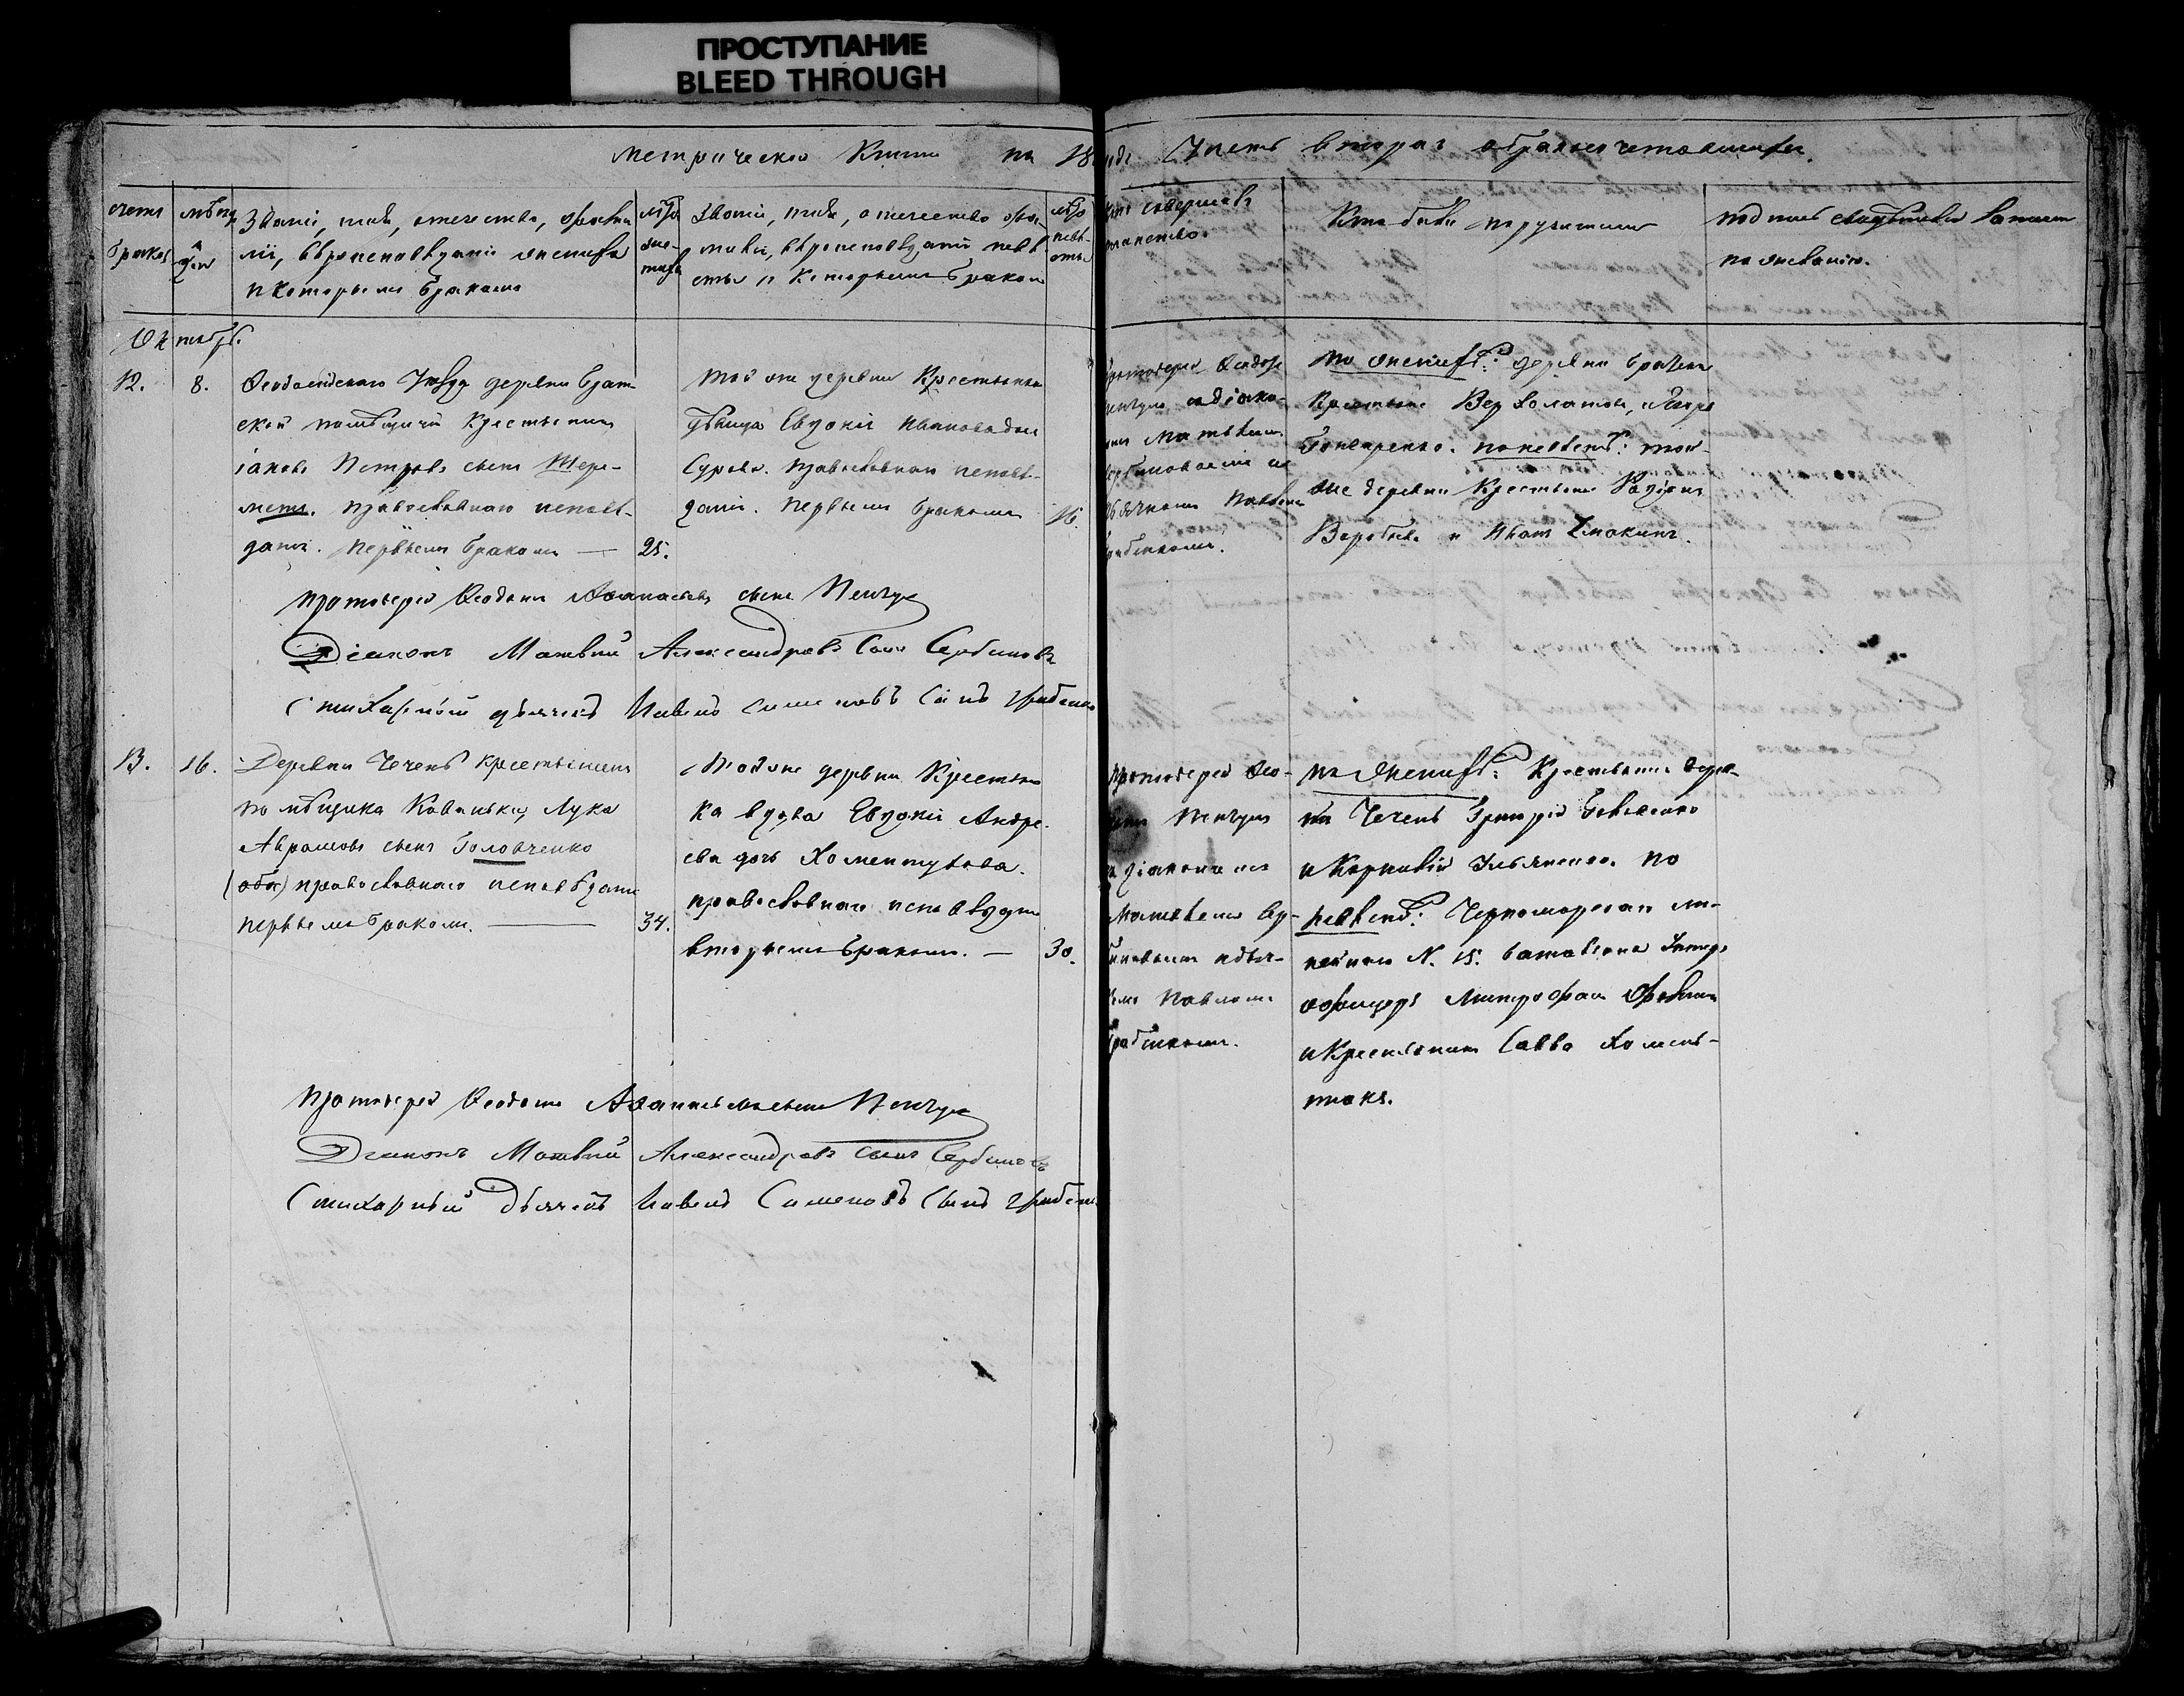 ПРОСТУПАНИЕ
BLEED THROUGH
метрическо Книги на 18
Часть вторая о бракосочетавшихся.
счетъ
браковъ
мѣсяц
и дни
Званіе, имя, отечество, фами
лія, вѣроисповѣданіе жениха
и которымъ бракомъ
лѣта
же-
ниха
Званіе, имя, отечество, фа
милія, вѣроисповѣданіе невѣ
сты и которымъ бракомъ
лѣта
невѣ-
сты
кто совершалъ
таинство.
Кто были поручители
подпись свидѣтелей записи
по желанію.
Октябрь.
12.
8.
Ѳеодосійскаго Уѣзда деревни Брат
ской помѣщичій Крестьянинъ
іаковъ Петровъ сынъ Шере-
метъ. православнаго исповѣ-
данія. первымъ бракомъ —
25.
той же деревни Крестьянка
дѣвица Евдокія Иванова дочь
Сурова. православнаго исповѣ-
данія. первымъ бракомъ
16.
протоіерей Ѳеодосій
съ діако-
номъ Матвѣемъ
Сербиновымъ и
дьячкомъ Павломъ
по женихѣ: деревни Братской
Крестьяне
Гончаренко. по невѣстѣ: той-
же деревни Крестьяне Родіонъ
Воробьевъ и Иванъ
протоіерей Ѳеодосій Аѳанасьевъ сынъ
Діаконъ Матвѣй Александровъ Сынъ Сербиновъ
Стихарный дьячекъ Павелъ Сименовъ Сынъ
13.
16.
Деревни Чечень крестьянинъ
помѣщика Кованька, Лука
Аврамовъ сынъ Головченко
(оба) православнаго исповѣданія
первымъ бракомъ. —
34.
Той же деревни Крестьян
ка вдова Евдокія Андре-
ева дочь Хоментукова.
православнаго исповѣданія
вторымъ бракомъ. —
30.
протоіерей Ѳео-
съ діакономъ
Матвѣемъ Сер-
биновымъ и дьяч-
комъ Павломъ
по женихѣ: Крестьяне дерев-
ни Чечень Григорій
и Корнилій Ульяненко. по
невѣстѣ: Черноморскаго ли-
нейнаго N. 15. баталіона Унтеръ
офицеръ Митрофан
и Крестьянинъ Савва Хомень-
токъ.
протоіерей Ѳеодосій Аѳанасьевъ сынъ
Діаконъ Матвѣй Александровъ Сынъ Сербиновъ
Стихарный Дьячекъ Павелъ Сименовъ Сынъ